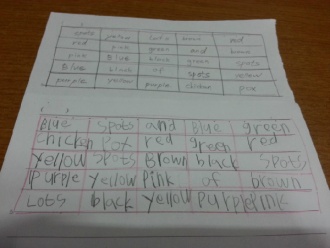 spots yellow Lots brown red
red pink green and brown
pink Blue black green spots
Blue black of spots yellow
purple yellow purple chicken pox
Blue spots and Blue green
chicken pox red green red
yellow spots Brown black spots
Purple yellow Pink of brown
Lots black yellow Purple Pink